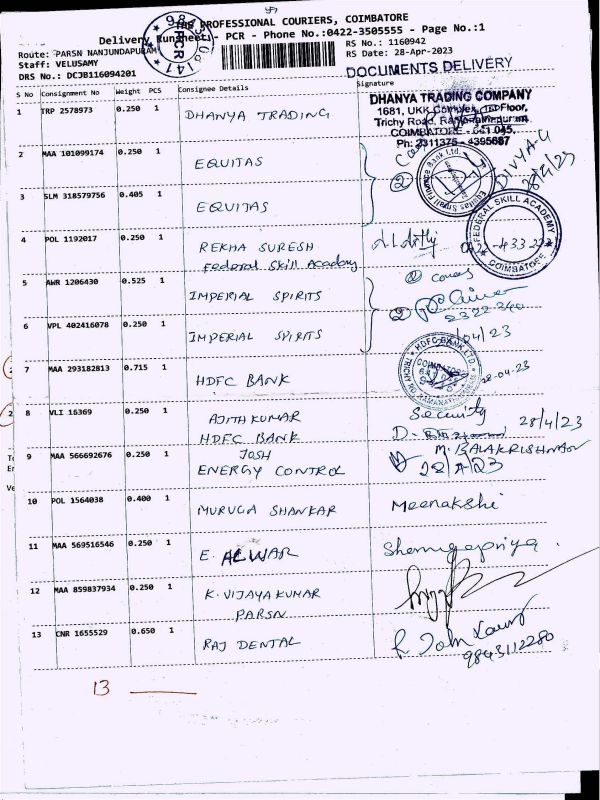 THE PROFESSIONAL COURIERS, COIMBATORE
Delivery Runsheet - PCR - Phone No.:0422-3505555 - Page No.:1
Route: PARSN NANJUNDAPURAM
RS No.: 1160942
Staff: VELUSAMY
RS Date: 28-Apr-2023
DRS No.: DCJB116094201
DOCUMENTS DELIVERY
S No Consignment No Weight PCS Consignee Details Signature
1 TRP 2578973 0.250 1 DHANYA TRADING
DHANYA TRADING COMPANY
1681, UKK Complex, Floor,
Trichy Road, Ramanathapuram,
COIMBATORE - 641 045.
Ph: 2311375 - 4395687
2 MAA 101099174 0.250 1 EQUITAS
Equitas Small Finance Bank Ltd.
DIVYA.G
28/4/23
3 SLM 318579756 0.405 1 EQUITAS
4 POL 1192017 0.250 1 REKHA SURESH
Federal Skill Academy
FEDERAL SKILL ACADEMY
COIMBATORE
5 AWR 1206430 0.525 1 IMPERIAL SPIRITS
6 VPL 402416078 0.250 1 IMPERIAL SPIRITS
7 MAA 293182813 0.715 1 HDFC BANK
HDFC BANK LTD.
COIMBATORE
TRICHY RD, RAMANATHAPURAM
8 VLI 16369 0.250 1 AJITH KUMAR
HDFC BANK
Security
28/4/23
9 MAA 566692676 0.250 1 JOSH
ENERGY CONTROL
M. BALAKRISHNAN
28/4/23
10 POL 1564038 0.400 1 MURUGA SHANKAR Meenakshi
11 MAA 569516546 0.250 1 E. ALWAR Shenugapriya.
12 MAA 859837934 0.250 1 K. VIJAYA KUMAR
PARSN
13 CNR 1655529 0.650 1 RAJ DENTAL
9843112280
13